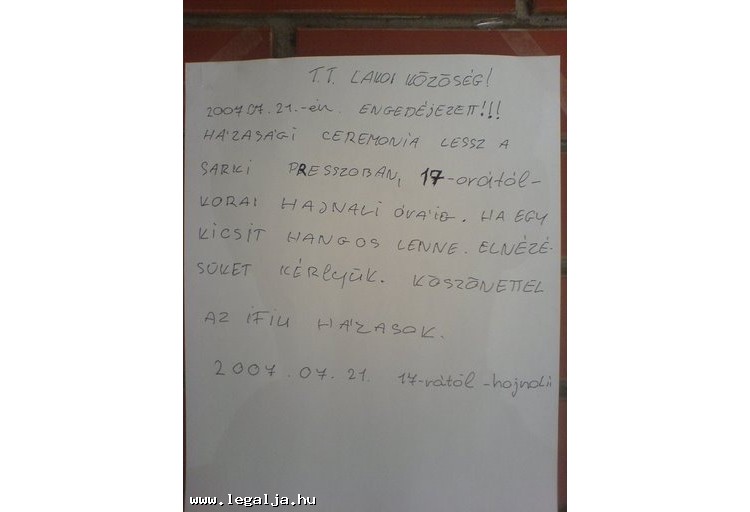 T.T. LAKOI KÖZÖSÉG!
2007.07.21.-én. ENGEDÉJEZETT!!!
HÁZASÁGI CEREMONIA LESSZ A
SARKI PRESSZOBAN, 17-orától-
KORAI HAJNALI ÓRÁIG. HA EGY
KICSIT HANGOS LENNE. ELNÉZÉ-
SÜKET KÉRLYÜK. KÖSZÖNETTEL
AZ IFIU HÁZASOK.
2007.07.21. 17-rától-hajnali
www.legalja.hu